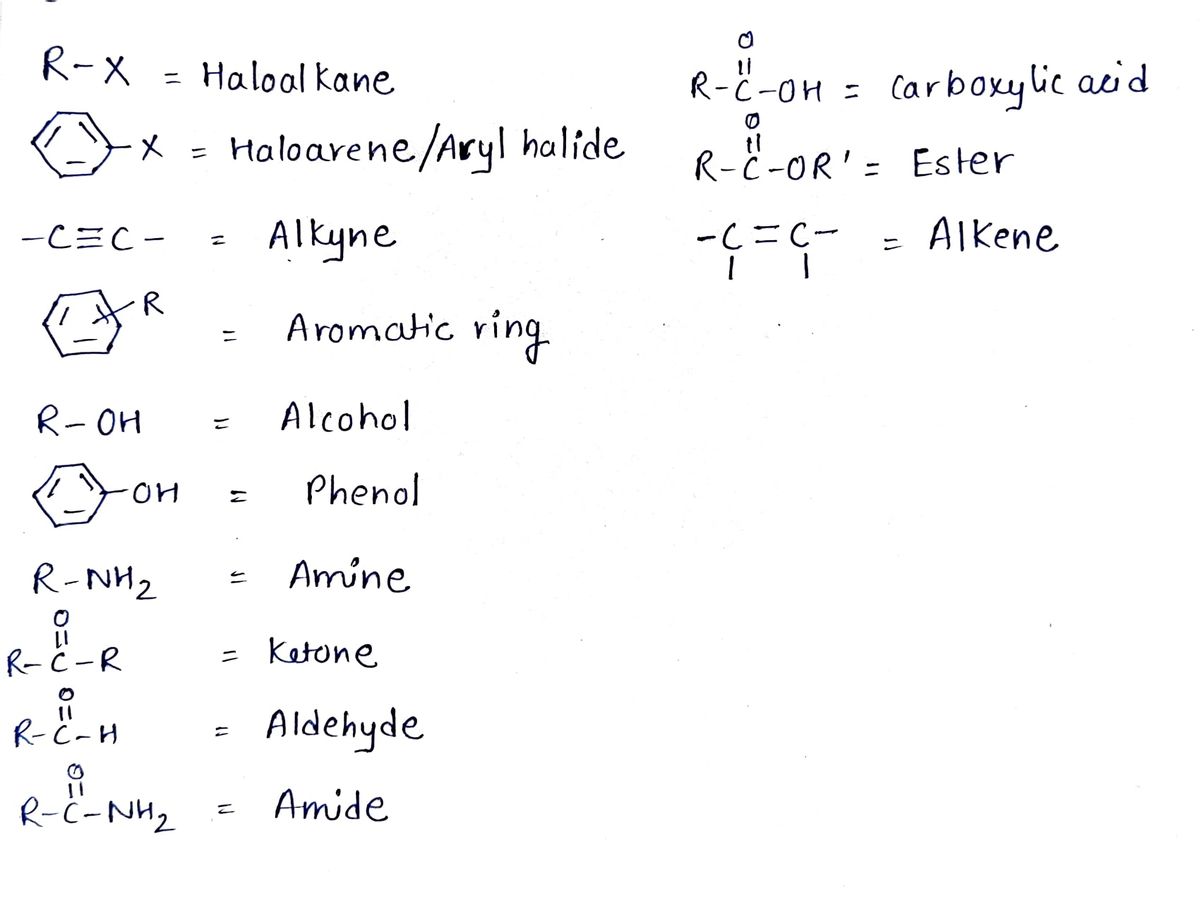 R-X = Haloalkane
X = Haloarene/Aryl halide
-C≡C- = Alkyne
R = Aromatic ring
R-OH = Alcohol
OH = Phenol
R-NH₂ = Amine
O
R-C-R = Ketone
O
R-C-H = Aldehyde
O
R-C-NH₂ = Amide
O
R-C-OH = Carboxylic acid
O
R-C-OR' = Ester
-C=C- = Alkene